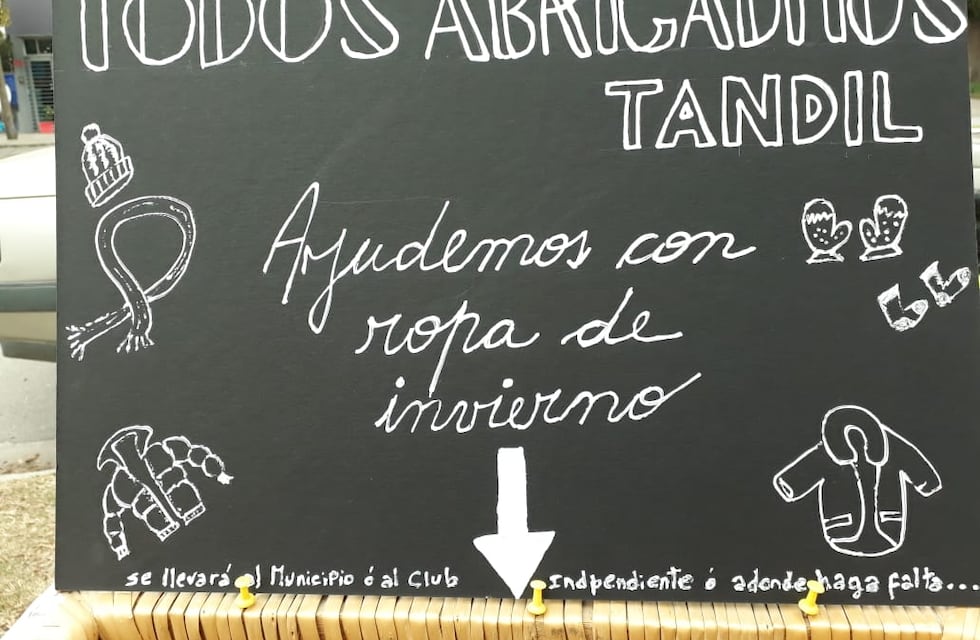 TODOS ABRIGADITOS
TANDIL
Ayudemos con
ropa de
invierno
se llevará al Municipio ó al Club Indpendiente ó adonde haga falta...